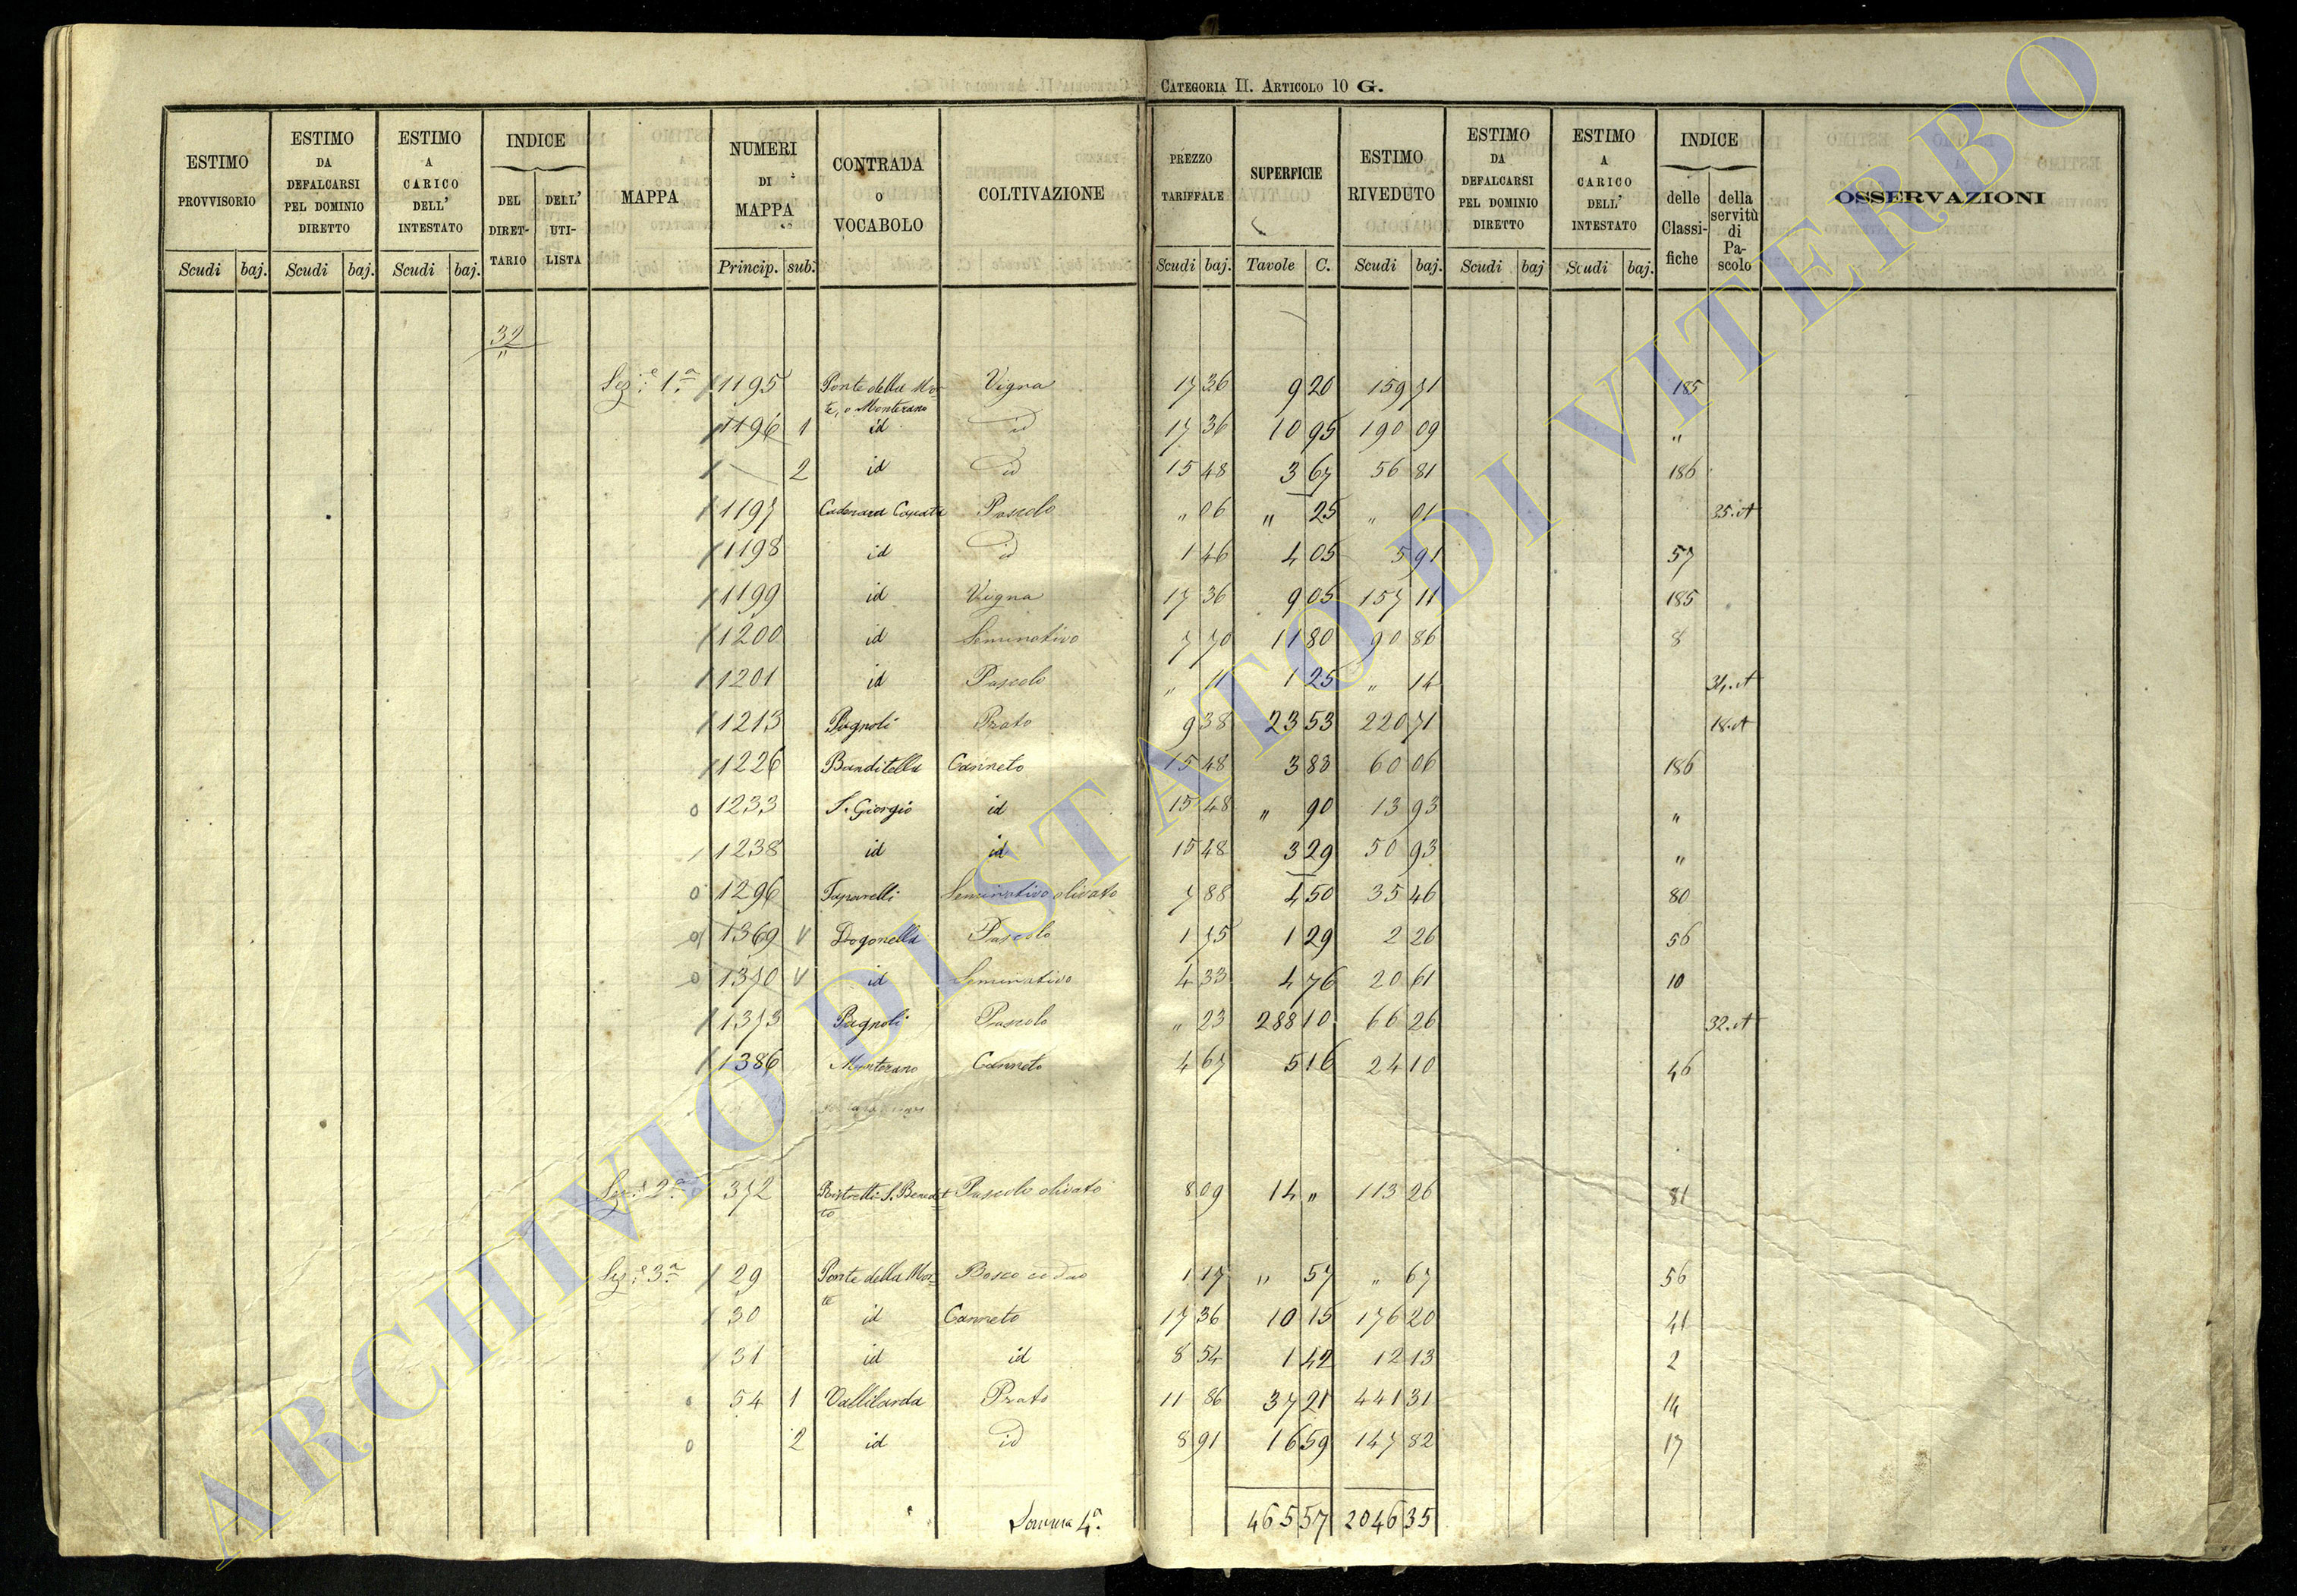 CATEGORIA II. ARTICOLO 10 G.
ESTIMO PROVVISORIO
ESTIMO DA DEFALCARSI PEL DOMINIO DIRETTO
ESTIMO A CARICO DELL' INTESTATO
INDICE
DEL DIRET-TARIO
DELL' UTI-LISTA
MAPPA
NUMERI DI MAPPA
CONTRADA O VOCABOLO
COLTIVAZIONE
PREZZO TARIFFALE
SUPERFICIE
ESTIMO RIVEDUTO
ESTIMO DA DEFALCARSI PEL DOMINIO DIRETTO
ESTIMO A CARICO DELL' INTESTATO
INDICE
delle Classi-fiche
della servitù di Pa-scolo
OSSERVAZIONI
Scudi baj. Scudi baj. Scudi baj. Princip. sub. Scudi baj. Tavole C. Scudi baj. Scudi baj Scudi baj.
32
"
Sez.e 1a 1195 Ponte della Mor- Vigna 17 36 9 20 159 71 185
te, o Monterano
1196 1 id id 17 36 10 95 190 09 "
2 id id 15 48 3 67 56 81 186
1197 Pascolo " 06 " 25 " 01 35. A
1198 id id 1 46 4 05 5 91 57
1199 id Vigna 17 36 9 05 157 11 185
1200 id Seminativo 7 70 11 80 90 86 8
1201 id Pascolo " 11 1 25 " 14 34. A
1213 Pagnoli Prato 9 38 23 53 220 71 18. A
1226 Banditella Canneto 15 48 3 88 60 06 186
o 1233 S. Giorgio id 15 48 " 90 13 93 "
1238 id id 15 48 3 29 50 93 "
o 1296 Taparelli Seminativo olivato 7 88 4 50 35 46 80
o 1369 V Dogonella Pascolo 1 75 1 29 2 26 56
o 1370 V id Seminativo 4 33 4 76 20 61 10
1373 Pagnoli Pascolo " 23 288 10 66 26 32. A
1386 Monterano Canneto 4 67 5 16 24 10 46
Sez.e 2a 372 S. Benedet- Pascolo olivato 8 09 14 " 113 26 81
to
Sez.e 3a 29 Ponte della Mor- Bosco ceduo 1 17 " 57 " 67 56
te
30 id Canneto 17 36 10 15 176 20 41
31 id id 8 54 1 42 12 13 2
o 54 1 Vallilarda Prato 11 86 37 21 441 31 14
o 2 id id 8 91 16 59 147 82 17
Somma 4a. 465 57 2046 35
ARCHIVIO DI STATO DI VITERBO